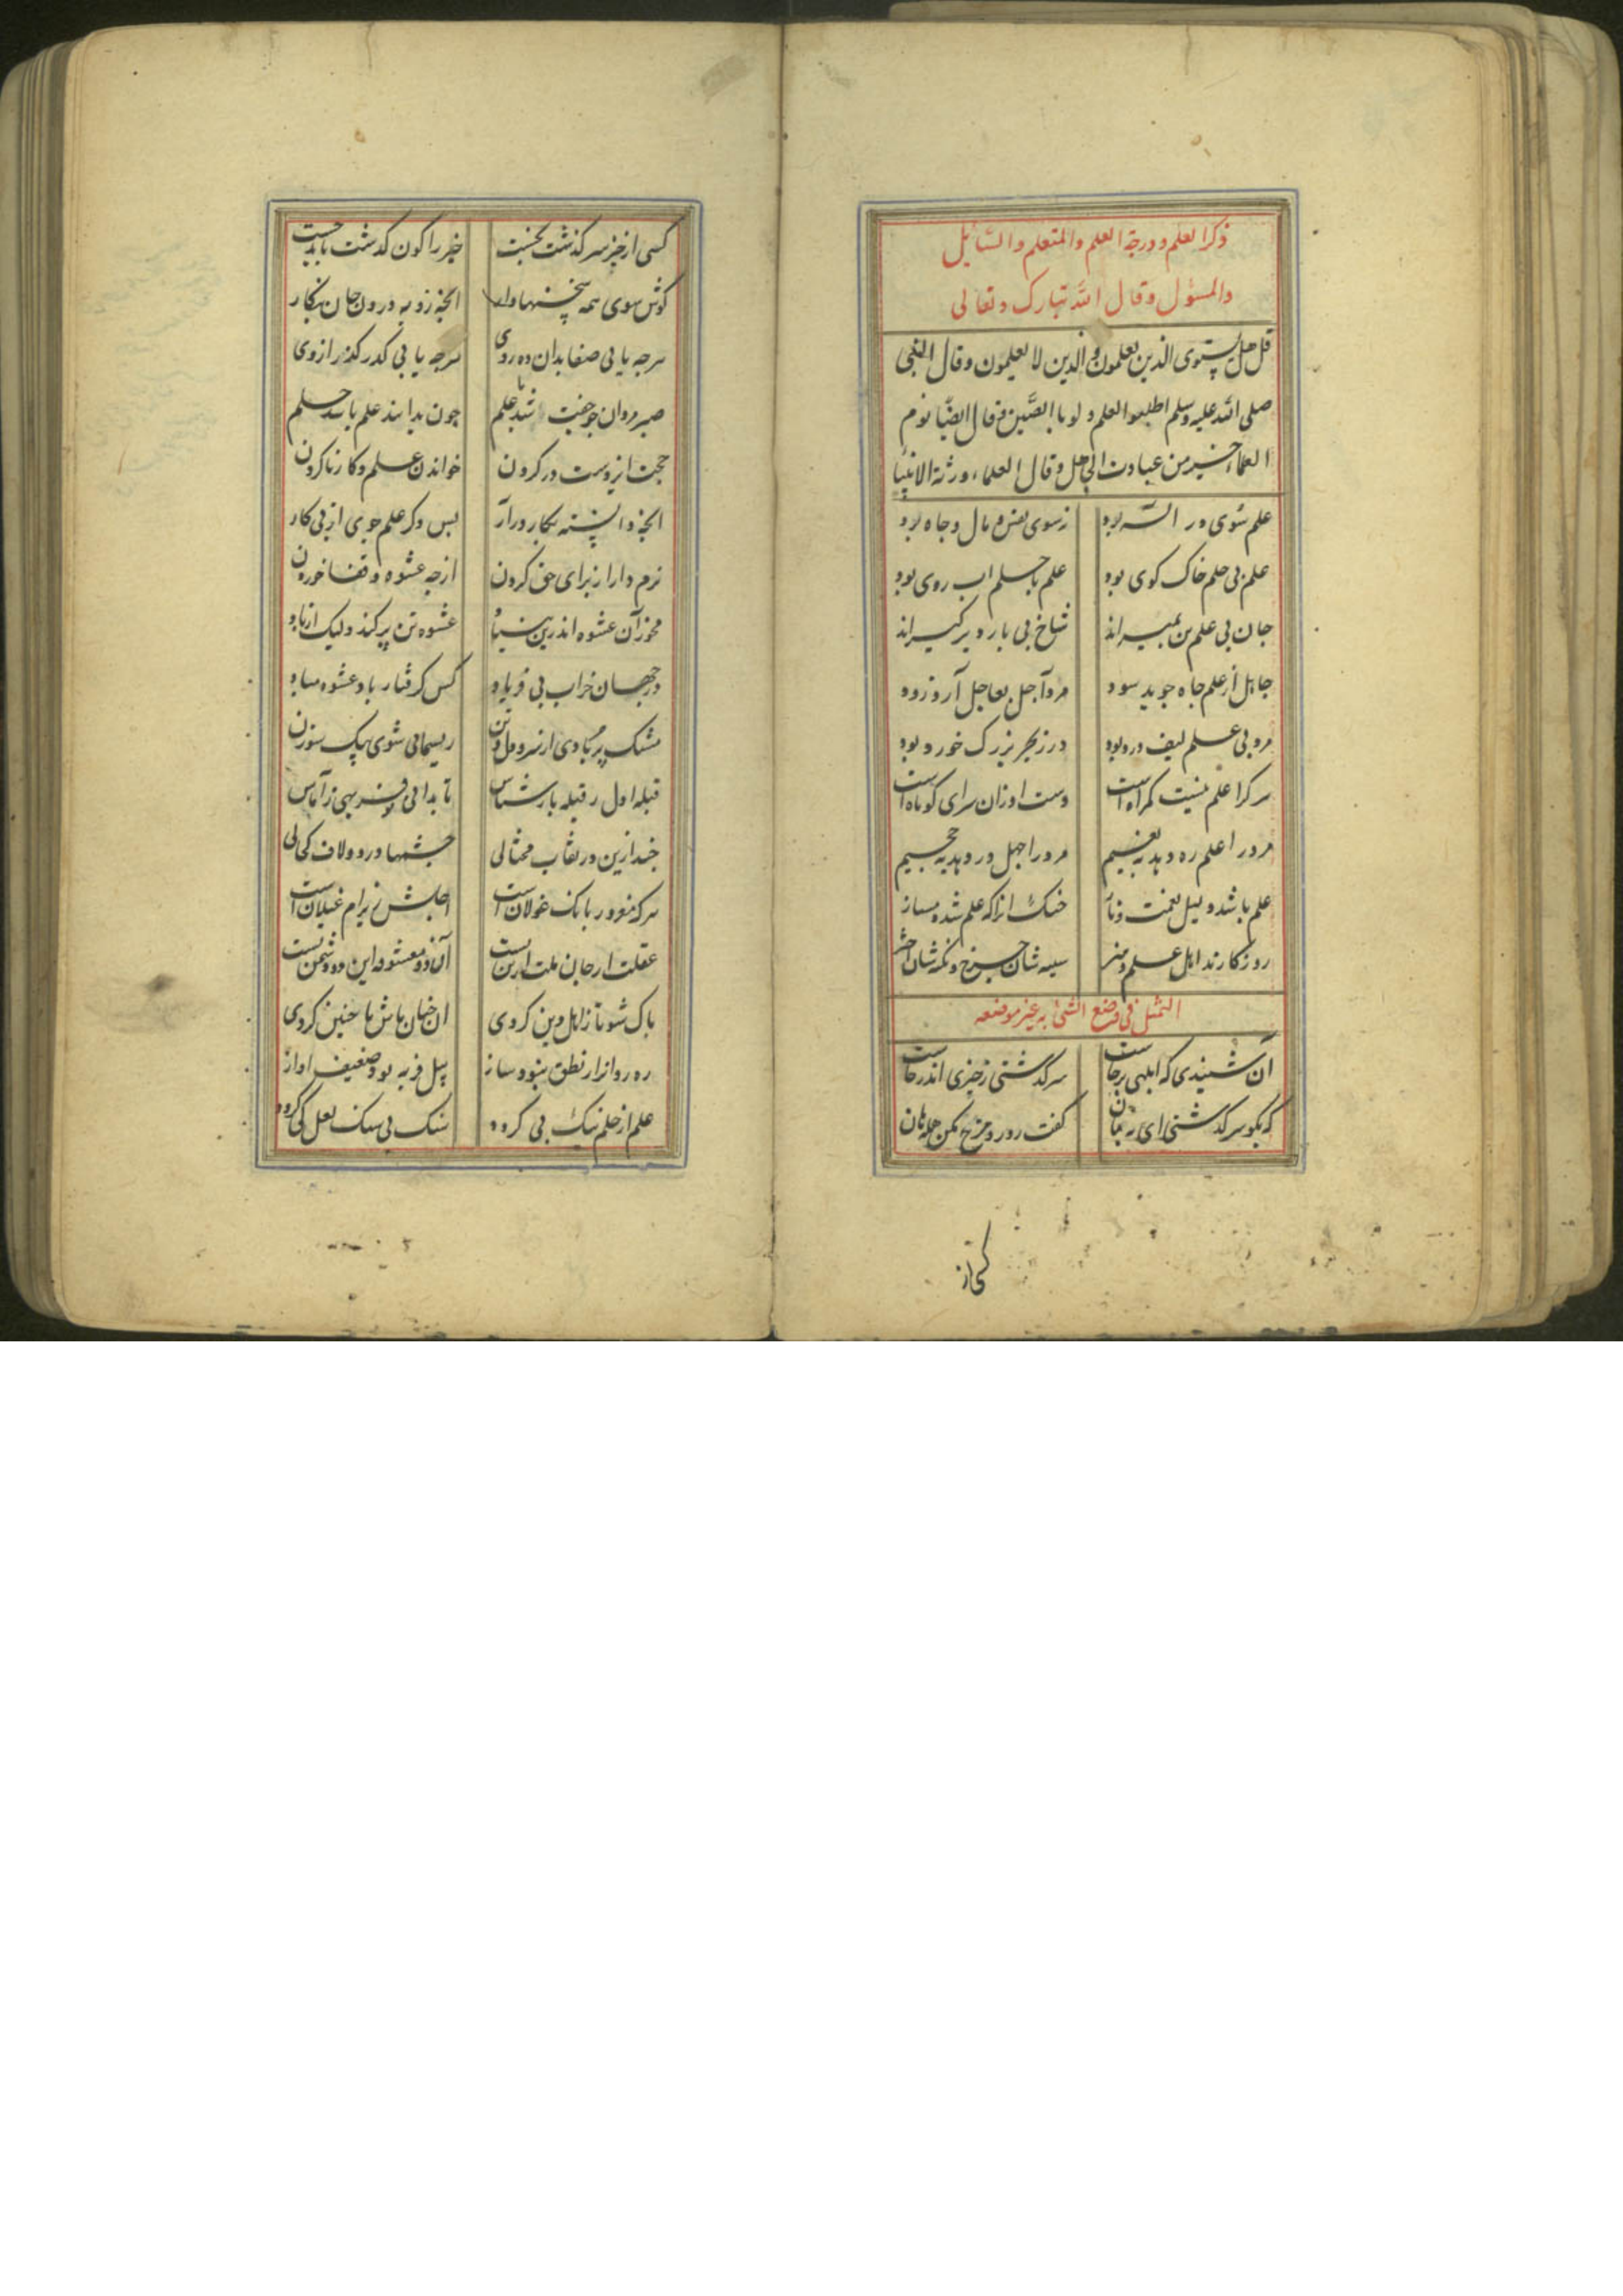 ذکر العلم و درجة العلم والمتعلم والسائل
والمسؤل وقال الله تبارک وتعالی
قل هل یستوی الذین یعلمون والذین لا یعلمون وقال النبی
صلی الله علیه وسلم اطلبوا العلم ولو بالصین وقال ایضا نوم
العلماء خیر من عبادت الجاهل وقال العلماء ورثة الانبیا
علم سوی در اله برد نه سوی نفس و مال و جاه برد
علم بی حلم خاک کوی بود علم با حلم اب روی بود
جان بی علم تن بمیراند شاخ بی بار دیر کیراند
جاهل از علم جاه جوید سود مرد آجل بعاجل آرد زود
مرد بی علم لیف درد بود درز بحر بزرک خورد بود
هر کرا علم نیست کمراه است دست او زان سرای کوتاه است
مرد را علم ره دهد به نعیم مرد را جهل در دهد به جحیم
علم باشد دلیل نعمت و ناز خنک انرا که علم شد دمساز
روزکارند اهل علم و هنر سیه شان چرخ و نکته شان اختر
التمثل فی وضع الشئ به غیر موضعه
آن شنیدی که ابلهی برخاست سرکذشتی ز خیزی اندرخاست
که بکو سرکذشتی ای به همان کفت رو رو مزخ مکن هله هان
کسی از
کسی از خیز سرکذشت نجست خیز را کون کدشت باید جست
کوش سوی همه سخنها دار انچه زو به درون جان بنکار
هرچه یابی صفا بدان ده روی هرچه یابی کدر کذر ازوی
صبر مردان چو جفت باشد علم چون بدانند علم باشد حلم
حجت ایزدست در کردن خواندن علم و کار ناکردن
انچه دانسته بکار در آر بس دکر علم جوی از پی کار
نرم دار از برای حق کردن از چه عشوه و قفا خوردن
مخور آن عشوه اندرین بنیاد عشوه تن پر کند ولیک از باد
در جهان خراب بی فریاد کس کرفتار باد عشوه مباد
مشک پر بادی از نر و مل و تن ریسمانی شوی بیک سوزن
قبله اول ز قبله باز شناس تا بدانی تو فربهی ز آماس
چند ازین در نقاب محتالی چشمها درد و لاف کحالی
هرکه مغرور بانک غولان است اجلش زیر ام غیلان است
عقلت از جان ملت ارین است آن دو معشوقه این دو دشمن است
باک شو تا ز اهل دین کردی ان چنان باش تا چنین کردی
ره روانرا ز نطق نبود ساز پیل فربه بود ضعیف اواز
علم از حلم نیک پی کردد سنک بی سنک لعل کی کردد